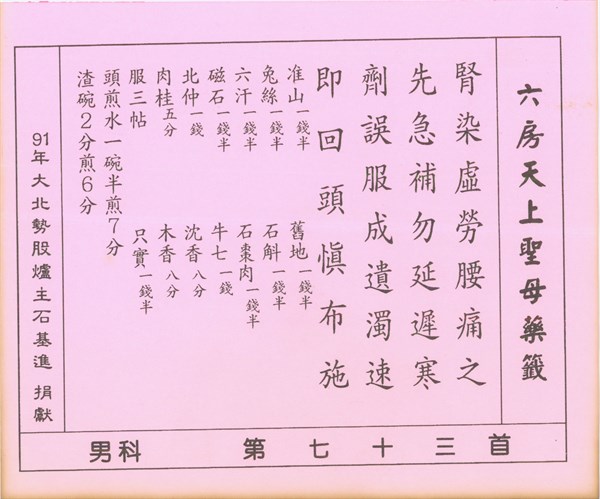 六房天上聖母藥籤
腎染虛勞腰痛之
先急補勿延遲寒
劑誤服成遺濁速
即回頭慎布施
准山一錢半 舊地一錢半
兔絲一錢半 石斛一錢半
六汗一錢半 石棗肉一錢半
磁石一錢半 牛七一錢
北仲一錢 沈香八分
肉桂五分 木香八分
服三帖 只實一錢半
頭煎水一碗半煎7分
渣碗2分煎6分
91年大北勢股爐主石基進 捐獻
男科 第七十三首